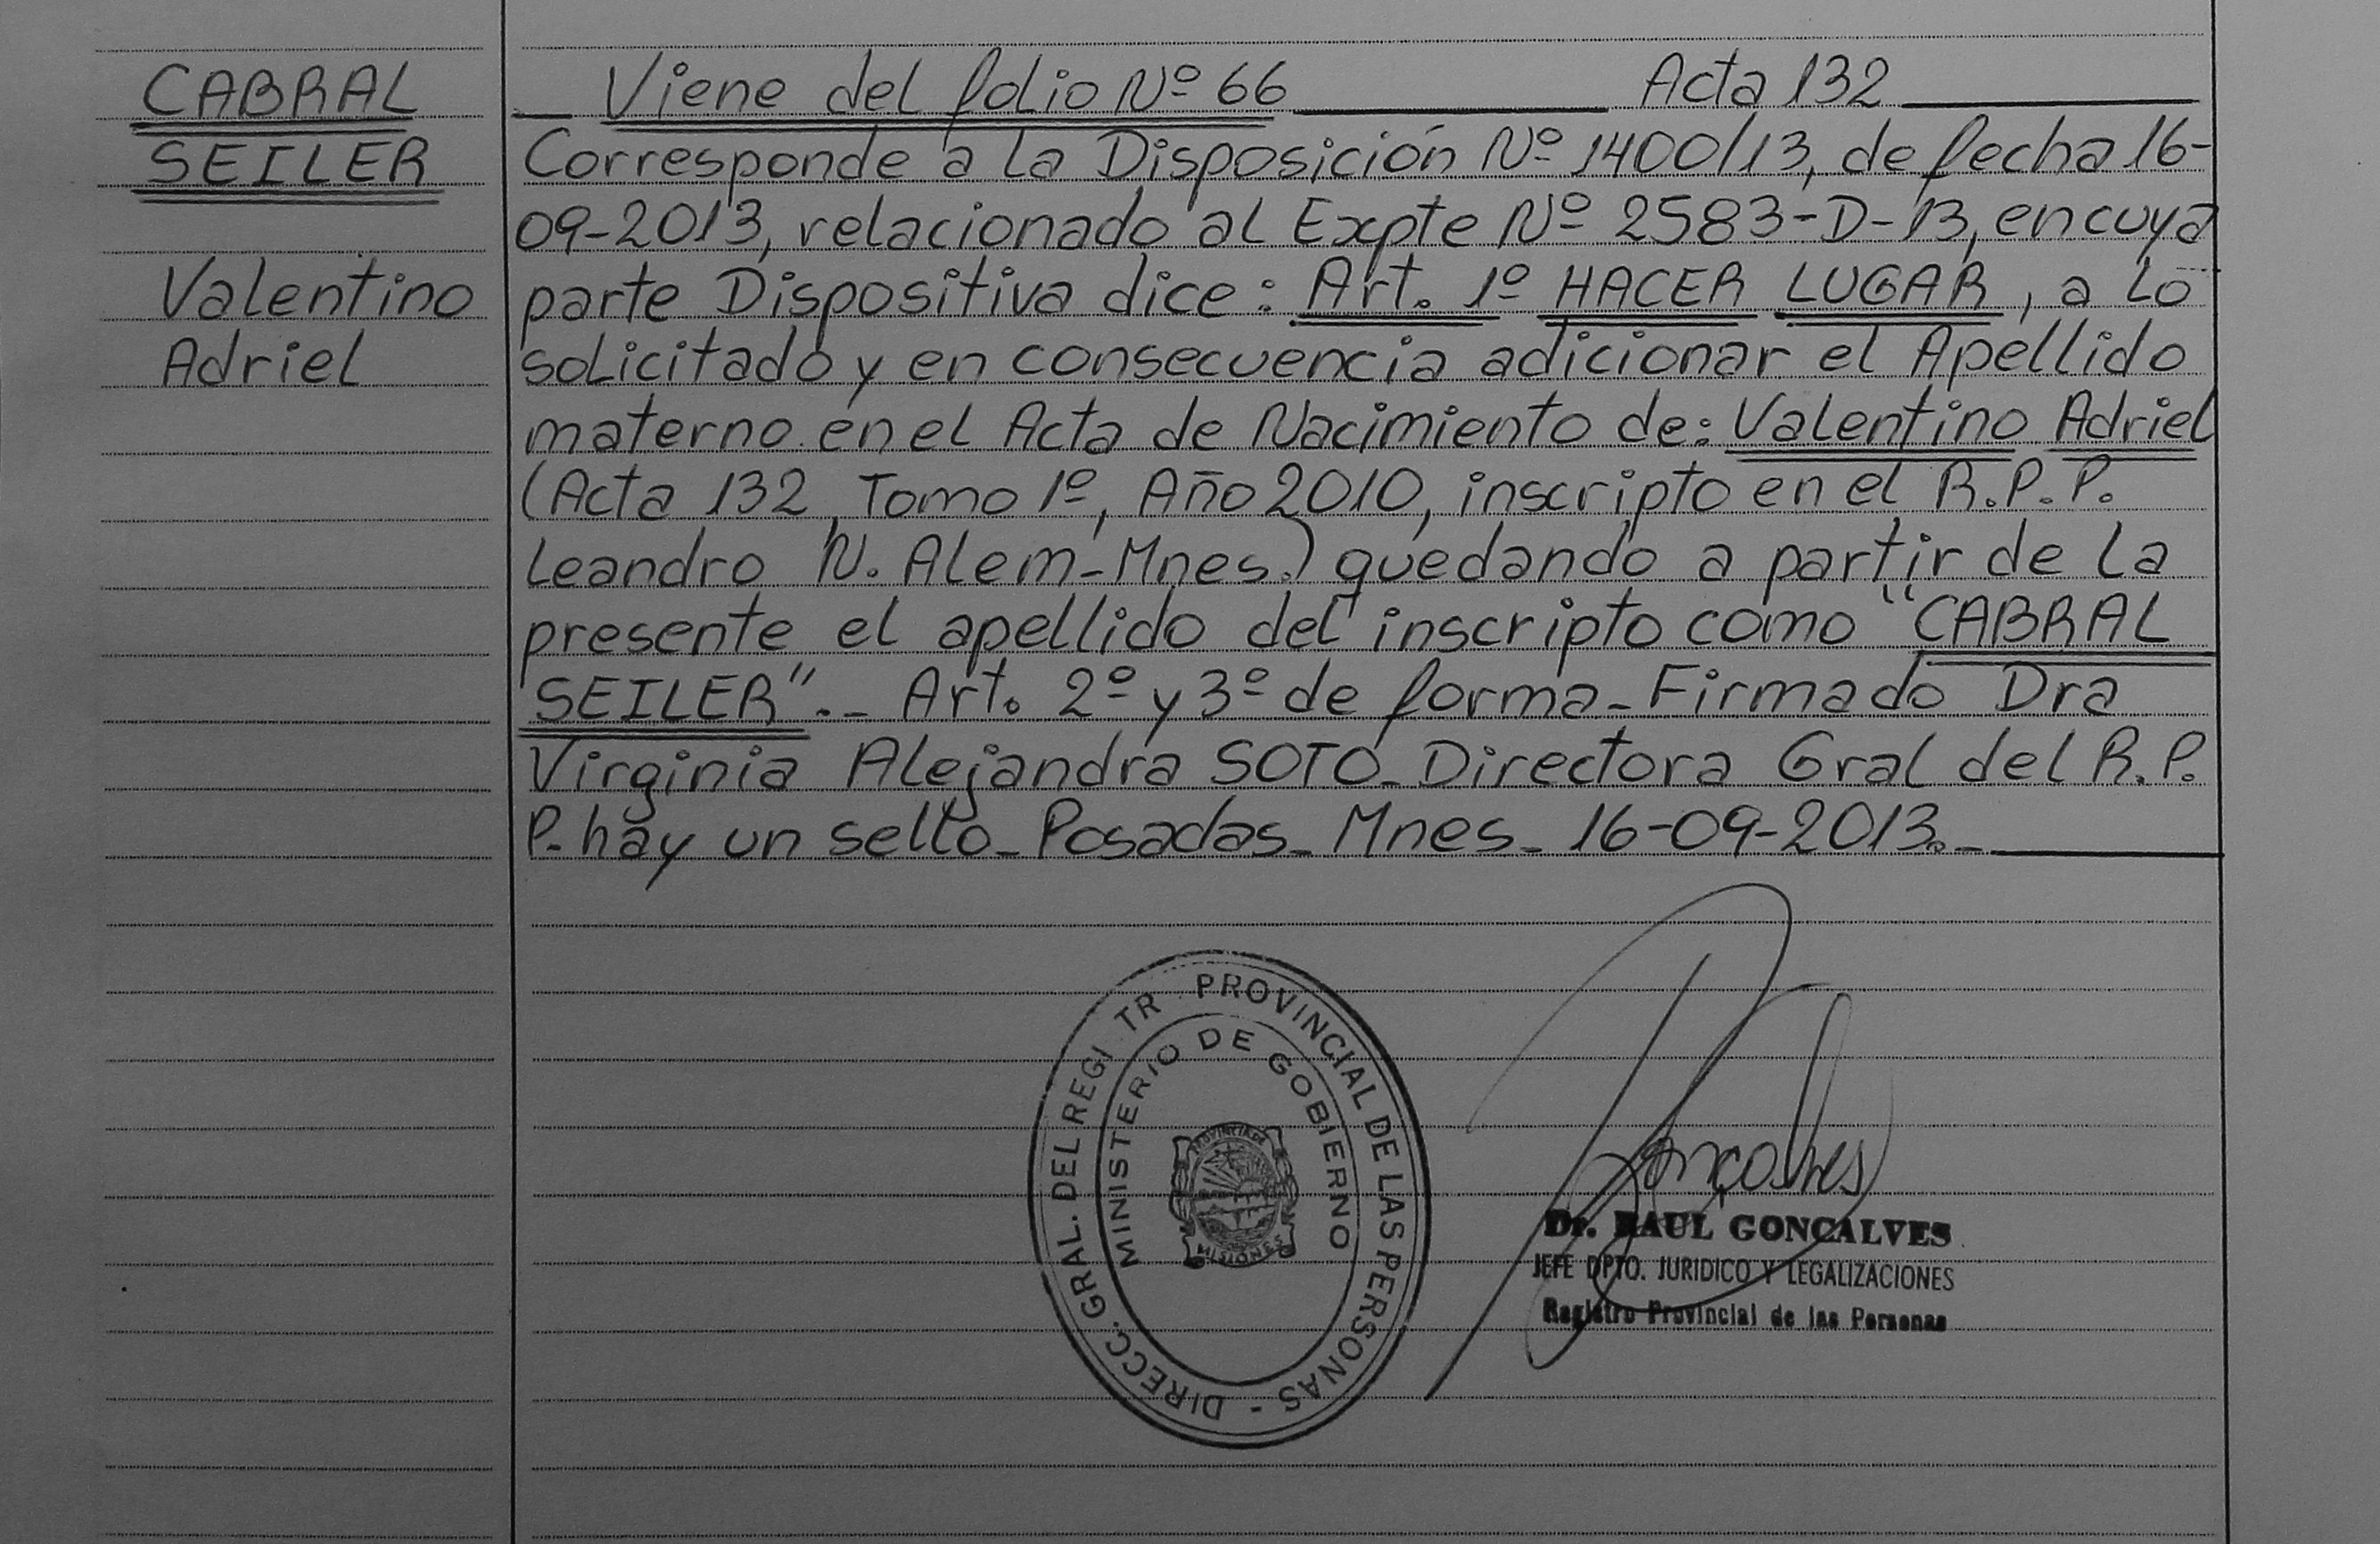 CABRAL
SEILER
Valentino
Adriel
Viene del folio Nº 66 Acta 132
Corresponde a la Disposición Nº 1400/13, de fecha 16-
09-2013, relacionado al Expte Nº 2583-D-13, en cuya
parte Dispositiva dice: Art. 1º HACER LUGAR, a lo
solicitado y en consecuencia adicionar el Apellido
materno en el Acta de Nacimiento de: Valentino Adriel
(Acta 132, Tomo 1º, Año 2010, inscripto en el R.P.P.
Leandro N. Alem-Mnes.) quedando a partir de la
presente el apellido del inscripto como "CABRAL
SEILER".- Art. 2º y 3º de forma-Firmado Dra
Virginia Alejandra SOTO-Directora Gral del R.P.
P. hay un sello-Posadas-Mnes-16-09-2013.-
DIRECC. GRAL. DEL REGI TR PROVINCIAL DE LAS PERSONAS -
MINISTERIO DE GOBIERNO
PROVINCIA DE
MISIONES
Gonçalves
Dr. RAUL GONCALVES
JEFE DPTO. JURIDICO Y LEGALIZACIONES
Registro Provincial de las Personas